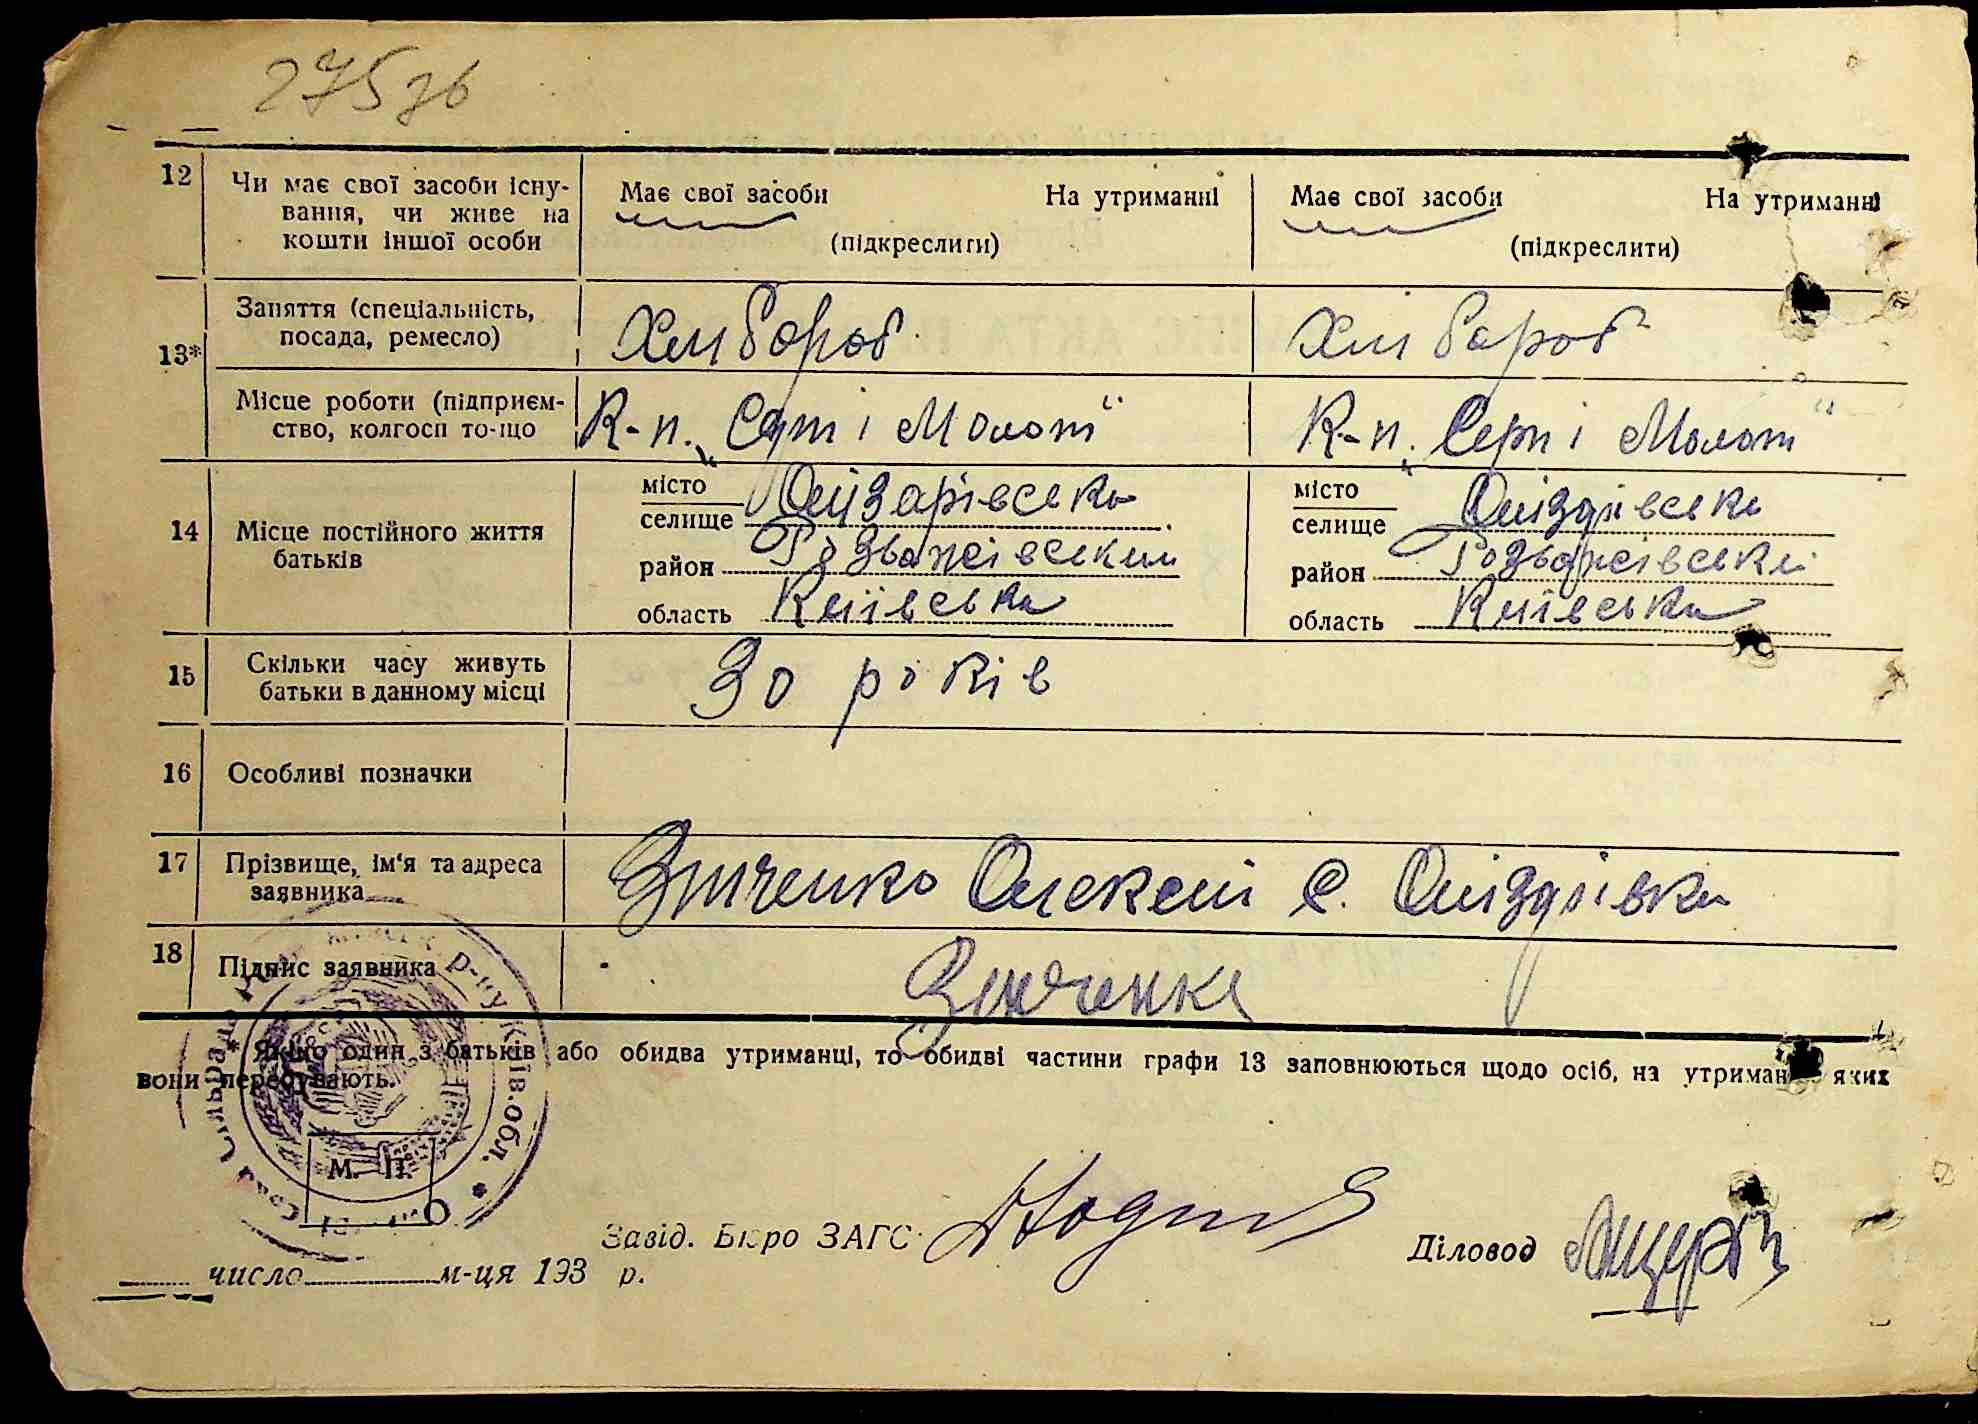 275 зв
12 Чи має свої засоби існу-
вання, чи живе на
кошти іншої особи
Має свої засоби На утриманні
(підкреслити)
Має свої засоби На утриманні
(підкреслити)
13*
Заняття (спеціальність,
посада, ремесло)
Хлібороб Хлібороб
Місце роботи (підприєм-
ство, колгосп то-що
К-п. „Серп і Молот" К-п. „Серп і Молот"
14 Місце постійного життя
батьків
місто
селище
район Розважівський
область Київська
місто
селище
район Розважівський
область Київська
15 Скільки часу живуть
батьки в данному місці
30 років
16 Особливі позначки
17 Прізвище, ім'я та адреса
заявника
Зінченко Олексій с.
18 Підпис заявника
Зінченко
* Якщо один з батьків або обидва утриманці, то обидві частини графи 13 заповнюються щодо осіб, на утриманні яких
вони перебувають.
р-ну Київ. обл. *
М. П.
Завід. Бюро ЗАГС
Діловод
число м-ця 193 р.